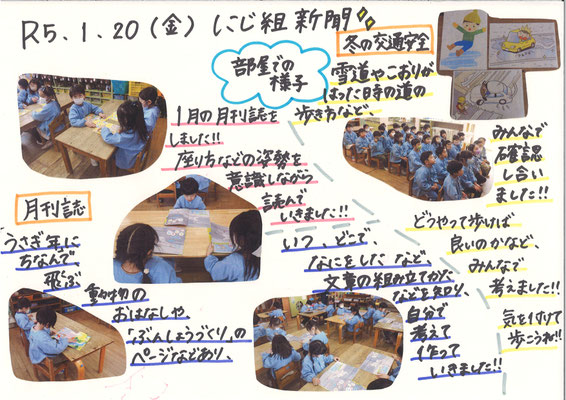 R5.1.20(金) にじ組新聞
部屋での
様子
1月の月刊誌を
しました!!
座り方などの姿勢を
意識しながら
読んで
いきました!!
月刊誌
うさぎ年に
ちなんで
飛ぶ
動物の
おはなしや、
「ぶんしょうづくり」の
ページなどあり、
いつ、どこで、
なにをした など、
文章の組み立てかた
などを知り、
自分で
考えて
作って
いきました!!
冬の交通安全
雪道やこおりが
はった時の道の
歩き方など、
みんなで
確認
し合い
ました!!
どうやって歩けば
良いのかなど、
みんなで
考えました!!
気を付けて
歩こうね!!